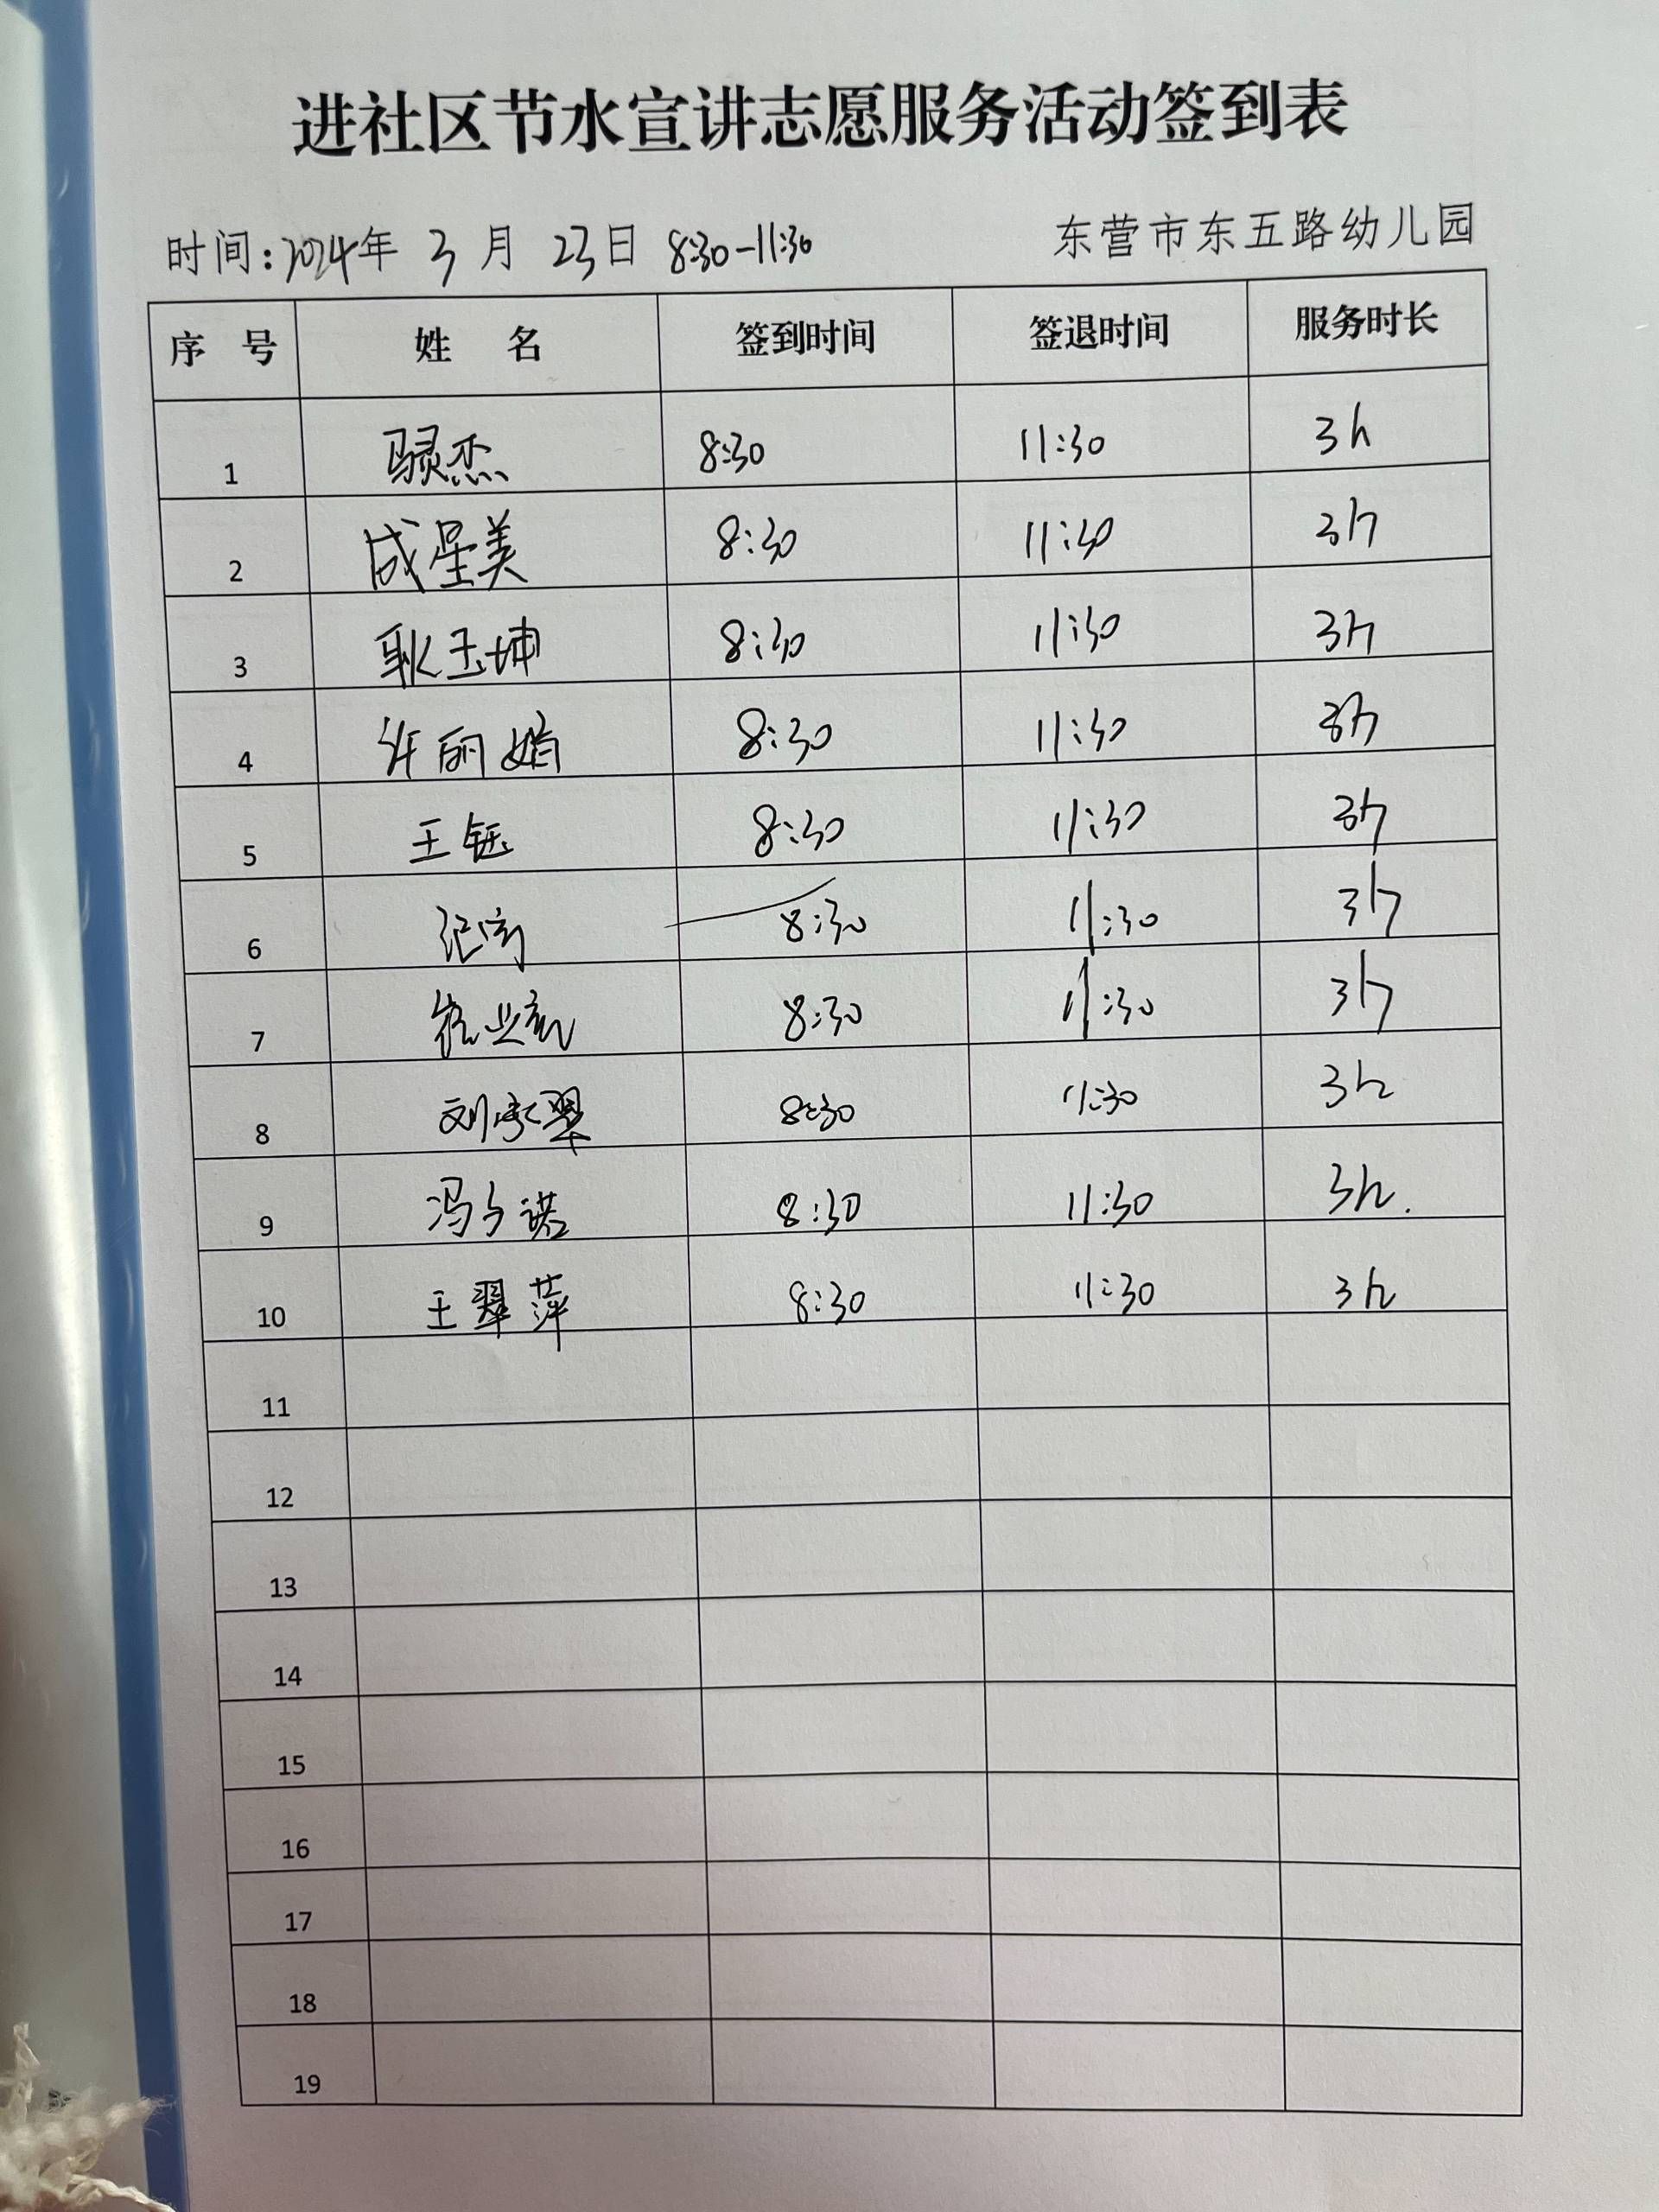 进社区节水宣讲志愿服务活动签到表
时间:2024年 3 月 23日 8:30-11:30 东营市东五路幼儿园
序 号 姓 名 签到时间 签退时间 服务时长
1 8:30 11:30 3h
2 成星美 8:30 11:30 3h
3 耿玉坤 8:30 11:30 3h
4 许丽娟 8:30 11:30 3h
5 王钰 8:30 11:30 3h
6 纪宁 8:30 11:30 3h
7 8:30 11:30 3h
8 刘 翠 8:30 11:30 3h
9 冯子诺 8:30 11:30 3h.
10 王翠萍 8:30 11:30 3h
11
12
13
14
15
16
17
18
19